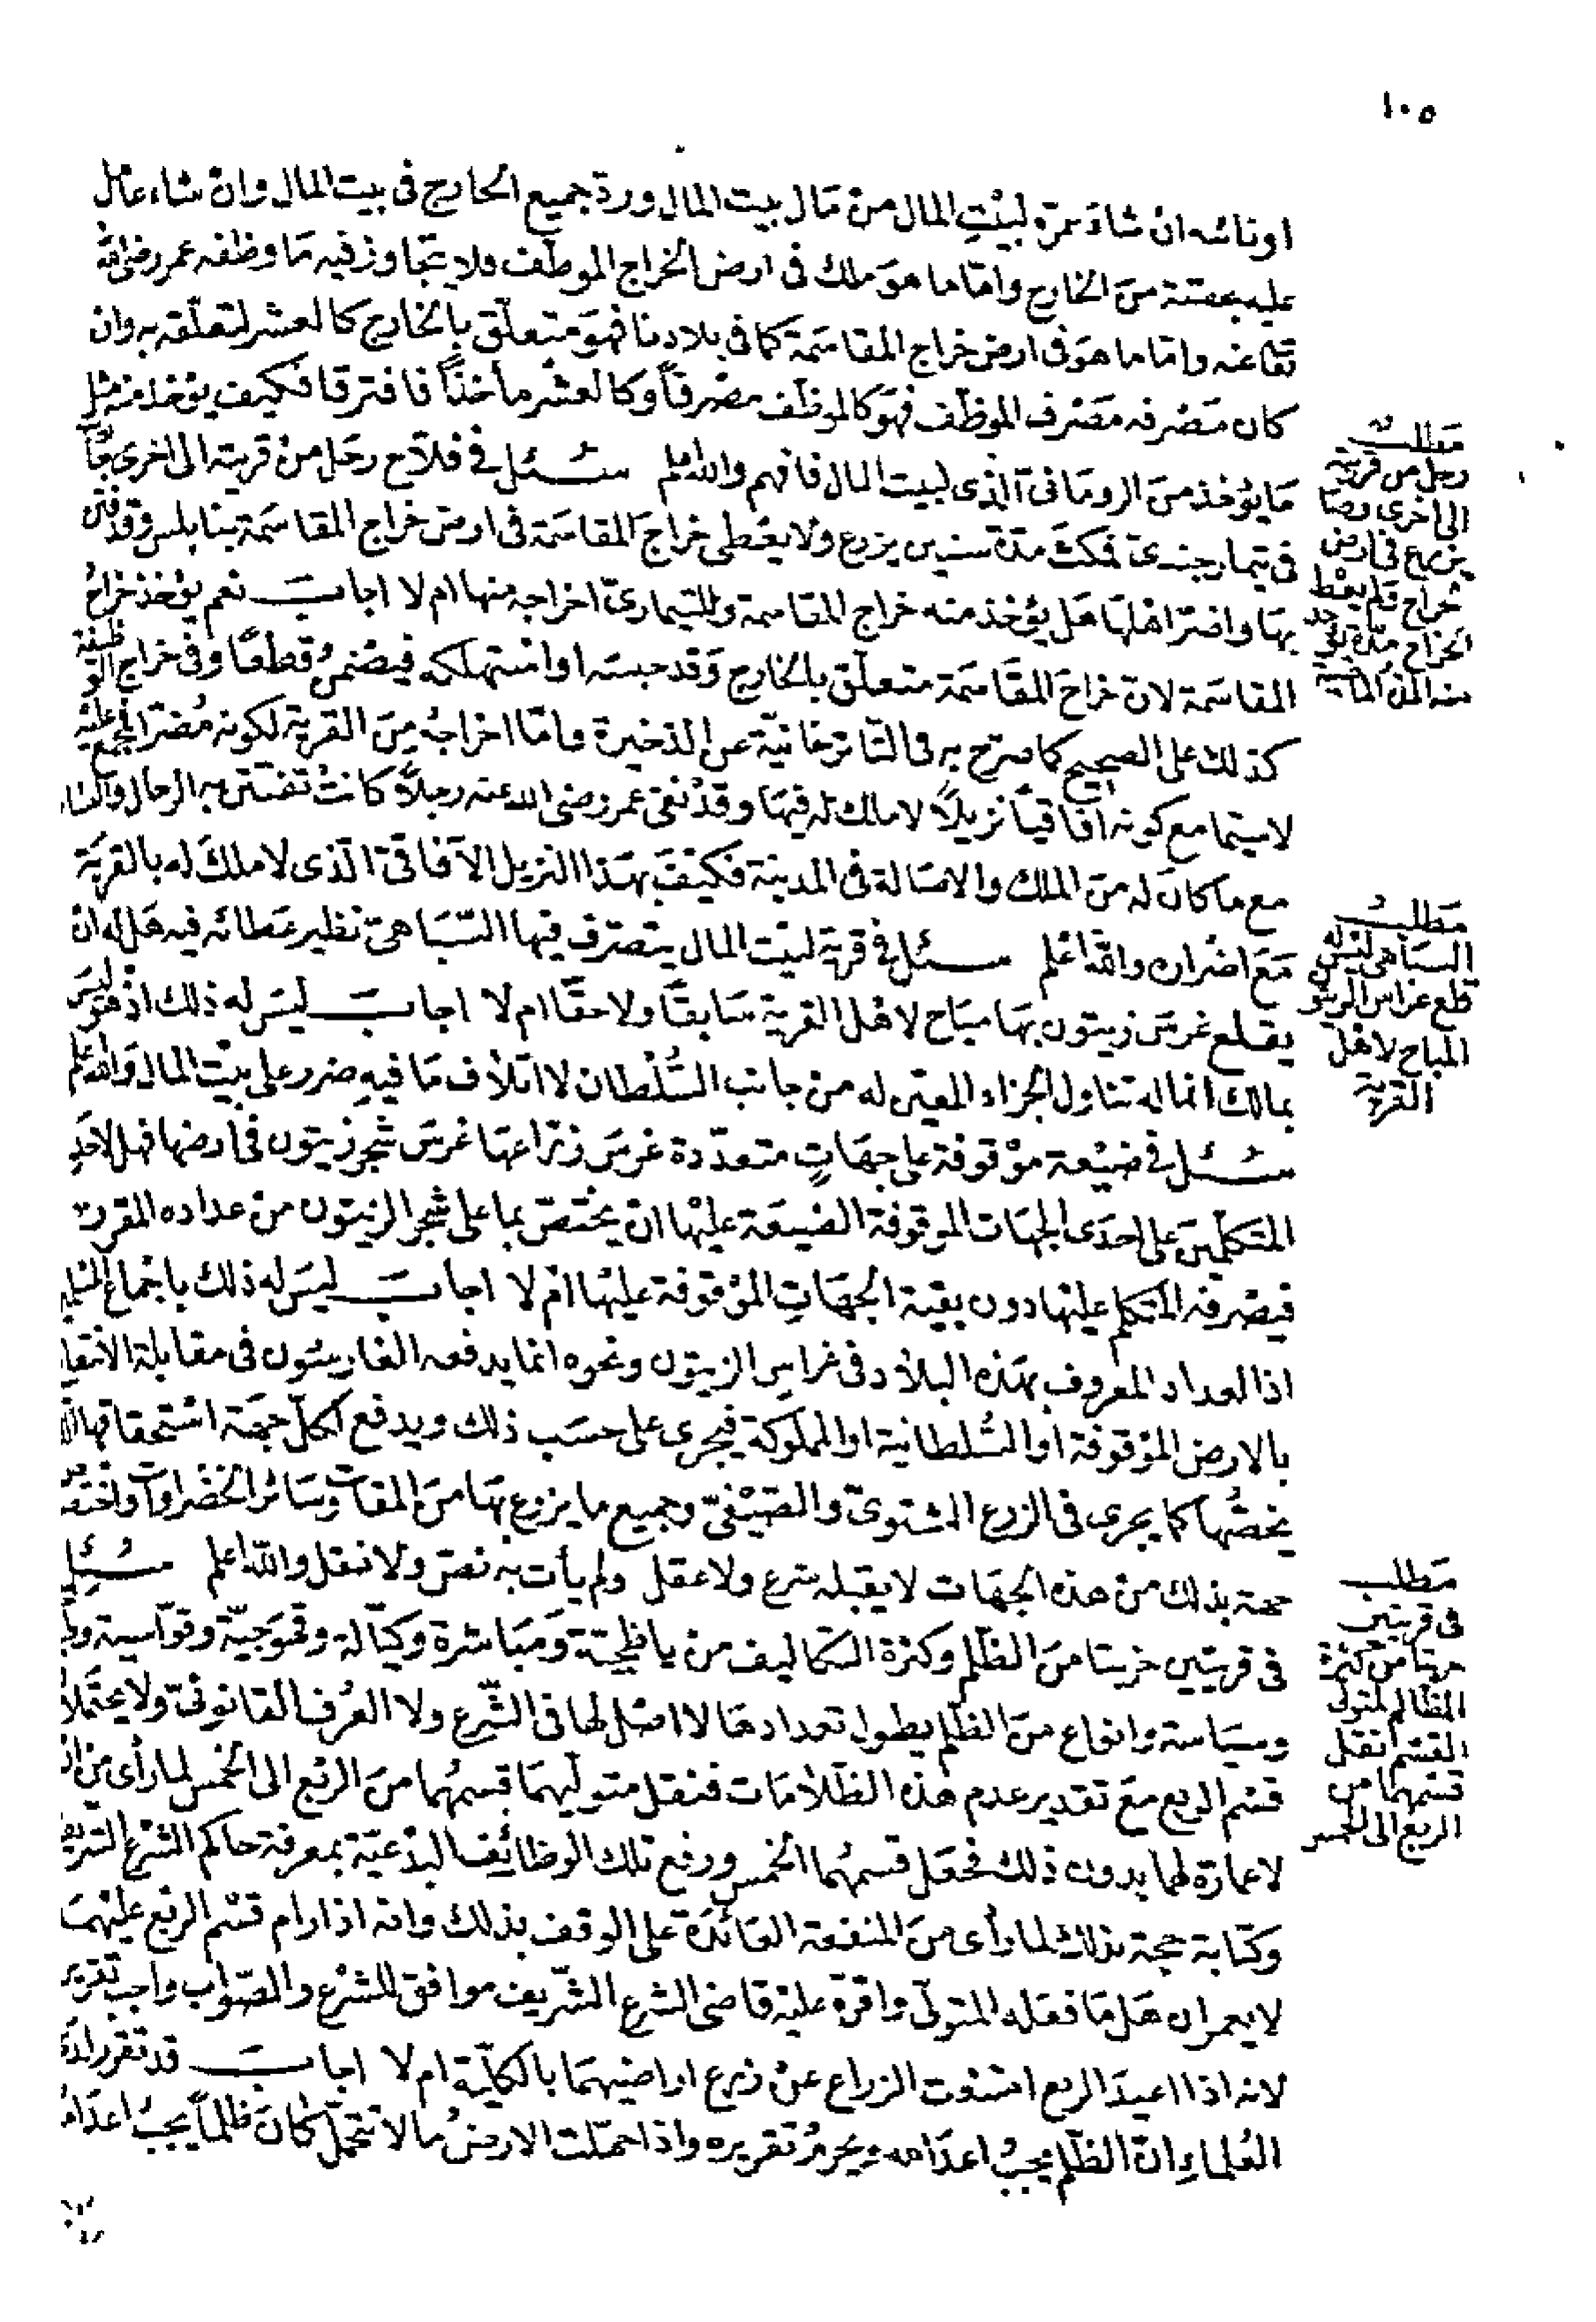 ١٠٥
او نائبه ان شاء عمره لبيت المال من مال بيت المال ورد جميع الخارج فى بيت المال وان شاء عامل
عليه بحصته من الخارج واما ما هو ملك فى ارض الخراج الموظف فلا يتجاوز فيه ما وظفه عمر رضى الله
تعا عنه واما ما هو فى ارض خراج المقاسمة كما فى بلادنا فهو متعلق بالخارج كالعشر لتعلقه به وان
كان مصرفه مصرف الموظف فهو كالموظف مصرفاً وكالعشر مأخذاً فافترقا فكيف يؤخذ منه مثل
ما يؤخذ من الرومانى الذى لبيت المال فافهم والله اعلم سئل فى فلاح رحل من قرية الى اخرى
فى تيمار جندى فمكث مدة سنين يزرع ولا يعطى خراج المقاسمة فى ارض خراج المقاسمة بنابلس وقد
بها واضر اهلها هل يؤخذ منه خراج المقاسمة وللتيمارى اخراجه منها ام لا اجاب نعم يؤخذ خراج
المقاسمة لان خراج المقاسمة متعلق بالخارج وقد حبسه او استهلكه فيضمن قطعًا وفى خراج الوظيفة
كذلك على الصحيح كما صرح به فى التاترخانية عن الذخيرة واما اخراجه من القرية لكونه مضرا فمجمع عليه
لا سيما مع كونه افاقياً نزيلاً لا ملك له فيها وقد نفى عمر رضى الله عنه رجلاً كانت تفتتن به الرجال والنساء
مع ما كان له من الملك والاصالة فى المدينة فكيف بهذا النزيل الآفاقى الذى لا ملك له بالقرية
مع اضراره والله اعلم سئل فى قرية لبيت المال يتصرف فيها السباهى نظير عطائه فيه هل له ان
يقلع غرس زيتون بها مباح لاهل القرية سابقًا ولاحقًا ام لا اجاب ليس له ذلك اذ هو ليس
بمالك انما له تناول الجزاء المعين له من جانب السلطان لا اتلاف ما فيه ضرر على بيت المال والله اعلم
سئل فى ضيعة موقوفة على جهاتٍ متعددة غرس زراعها غرس شجر زيتون فى ارضها فهل لاحد
المتكلمين على احدى الجهات الموقوفة الضيعة عليها ان يختص بما على شجر الزيتون من عداده المقرر
فيصرفه المتكلم عليها دون بقية الجهات الموقوفة عليها ام لا اجاب ليس له ذلك باجماع المسلمين
اذ العداد المعروف بهذه البلاد فى غراس الزيتون ونحوه انما يدفعه الغارسون فى مقابلة الانتفاع
بالارض الموقوفة او السلطانية او المملوكة فيجرى على حسب ذلك ويدفع لكل جهة استحقاقها الذى
يخصها كما يجرى فى الزرع الشتوى والصيفى وجميع ما يزرع بها من المقات وسائر الخضراوات واختصاص
جهة بذلك من هذه الجهات لا يقبله شرع ولا عقل ولم يأت به نص ولا نقل والله اعلم سئل
فى قريتين خربتا من الظلم وكثرة التكاليف من ومباشرة وكيالة وقحوجية وقواسية
وسياسة وانواع من الظلم يطول تعدادها لا اصل لها فى الشرع ولا العرف القانونى ولا يحتملان
قسم الربع مع تقدير عدم هذه الظلامات فنقل متوليهما قسمهما من الربع الى الخمس لما رأى من ان
لا عمارة لهما بدون ذلك فجعل قسمهما الخمس ورفع تلك الوظائف البدعية بمعرفة حاكم الشرع الشريف
وكتابة حجة بذلك لما رأى من المنفعة العائدة على الوقف بذلك وانه اذا رام قسم الربع عليهما
لا يعمران هل ما فعله المتولى واقره عليه قاضى الشرع الشريف موافق للشرع والصواب واجب تقريره
لانه اذا اعيد الربع امتنعت الزراع عن زرع اراضيهما بالكلية ام لا اجاب قد تقرر لدى
العلماء ان الظلم يجب اعدامه ويحرم تقريره واذا حملت الارض ما لا تتحمل كان ظلماً يجب اعدامه
مطلب
رحل من قرية
الى اخرى وصار
يزرع فى ارض
خراج فلم يعط
الخراج مدة يؤخذ
منه المدة الماضية
مطلب
السباهى ليس له
قلع غراس الزيتون
المباح لاهل
القرية
مطلب
فى قريتين
خربتا من كثرة
المظالم لمتولى
القسم نقل
قسمهما من
الربع الى الخمس